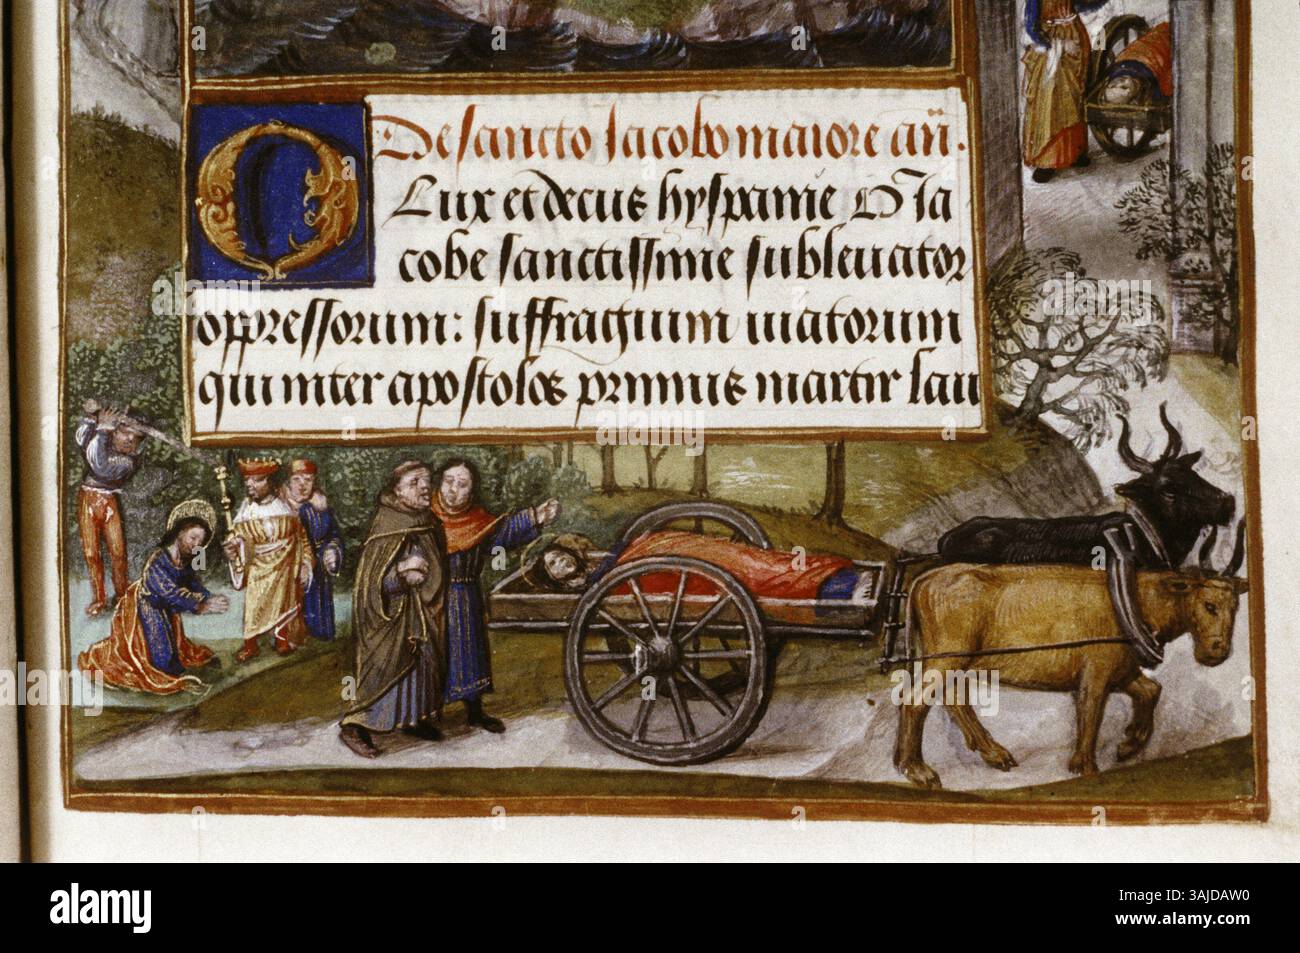 De sancto Jacobo maiore an̄.
O Lux et decus hyspanie O Ja
cobe sanctissime subleuator
oppressorum: suffragium uiatorum
qui inter apostolos primus martir lau
alamy
Image ID: 3AJDAW0
www.alamy.com